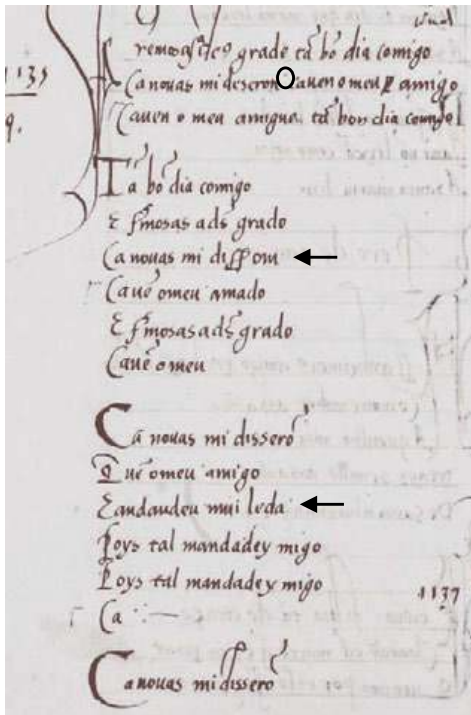 remosa sco grade ta bo dia comigo
1135
Ca nouas mi disserom Ca uen o meu amigo
9.
Ca uen o meu amigue ta bon dia comigo
Ta bo dia comigo
E fmosas ads grado
Ca nouas mi disserom
Ca ue o meu amado
E fmosas ads grado
Ca ue o meu
Ca nouas mi dissero
Que o meu amigo
E andandeu mui leda
Poys tal mandadey migo
Poys tal mandadey migo
1137
Ca
Ca nouas mi dissero